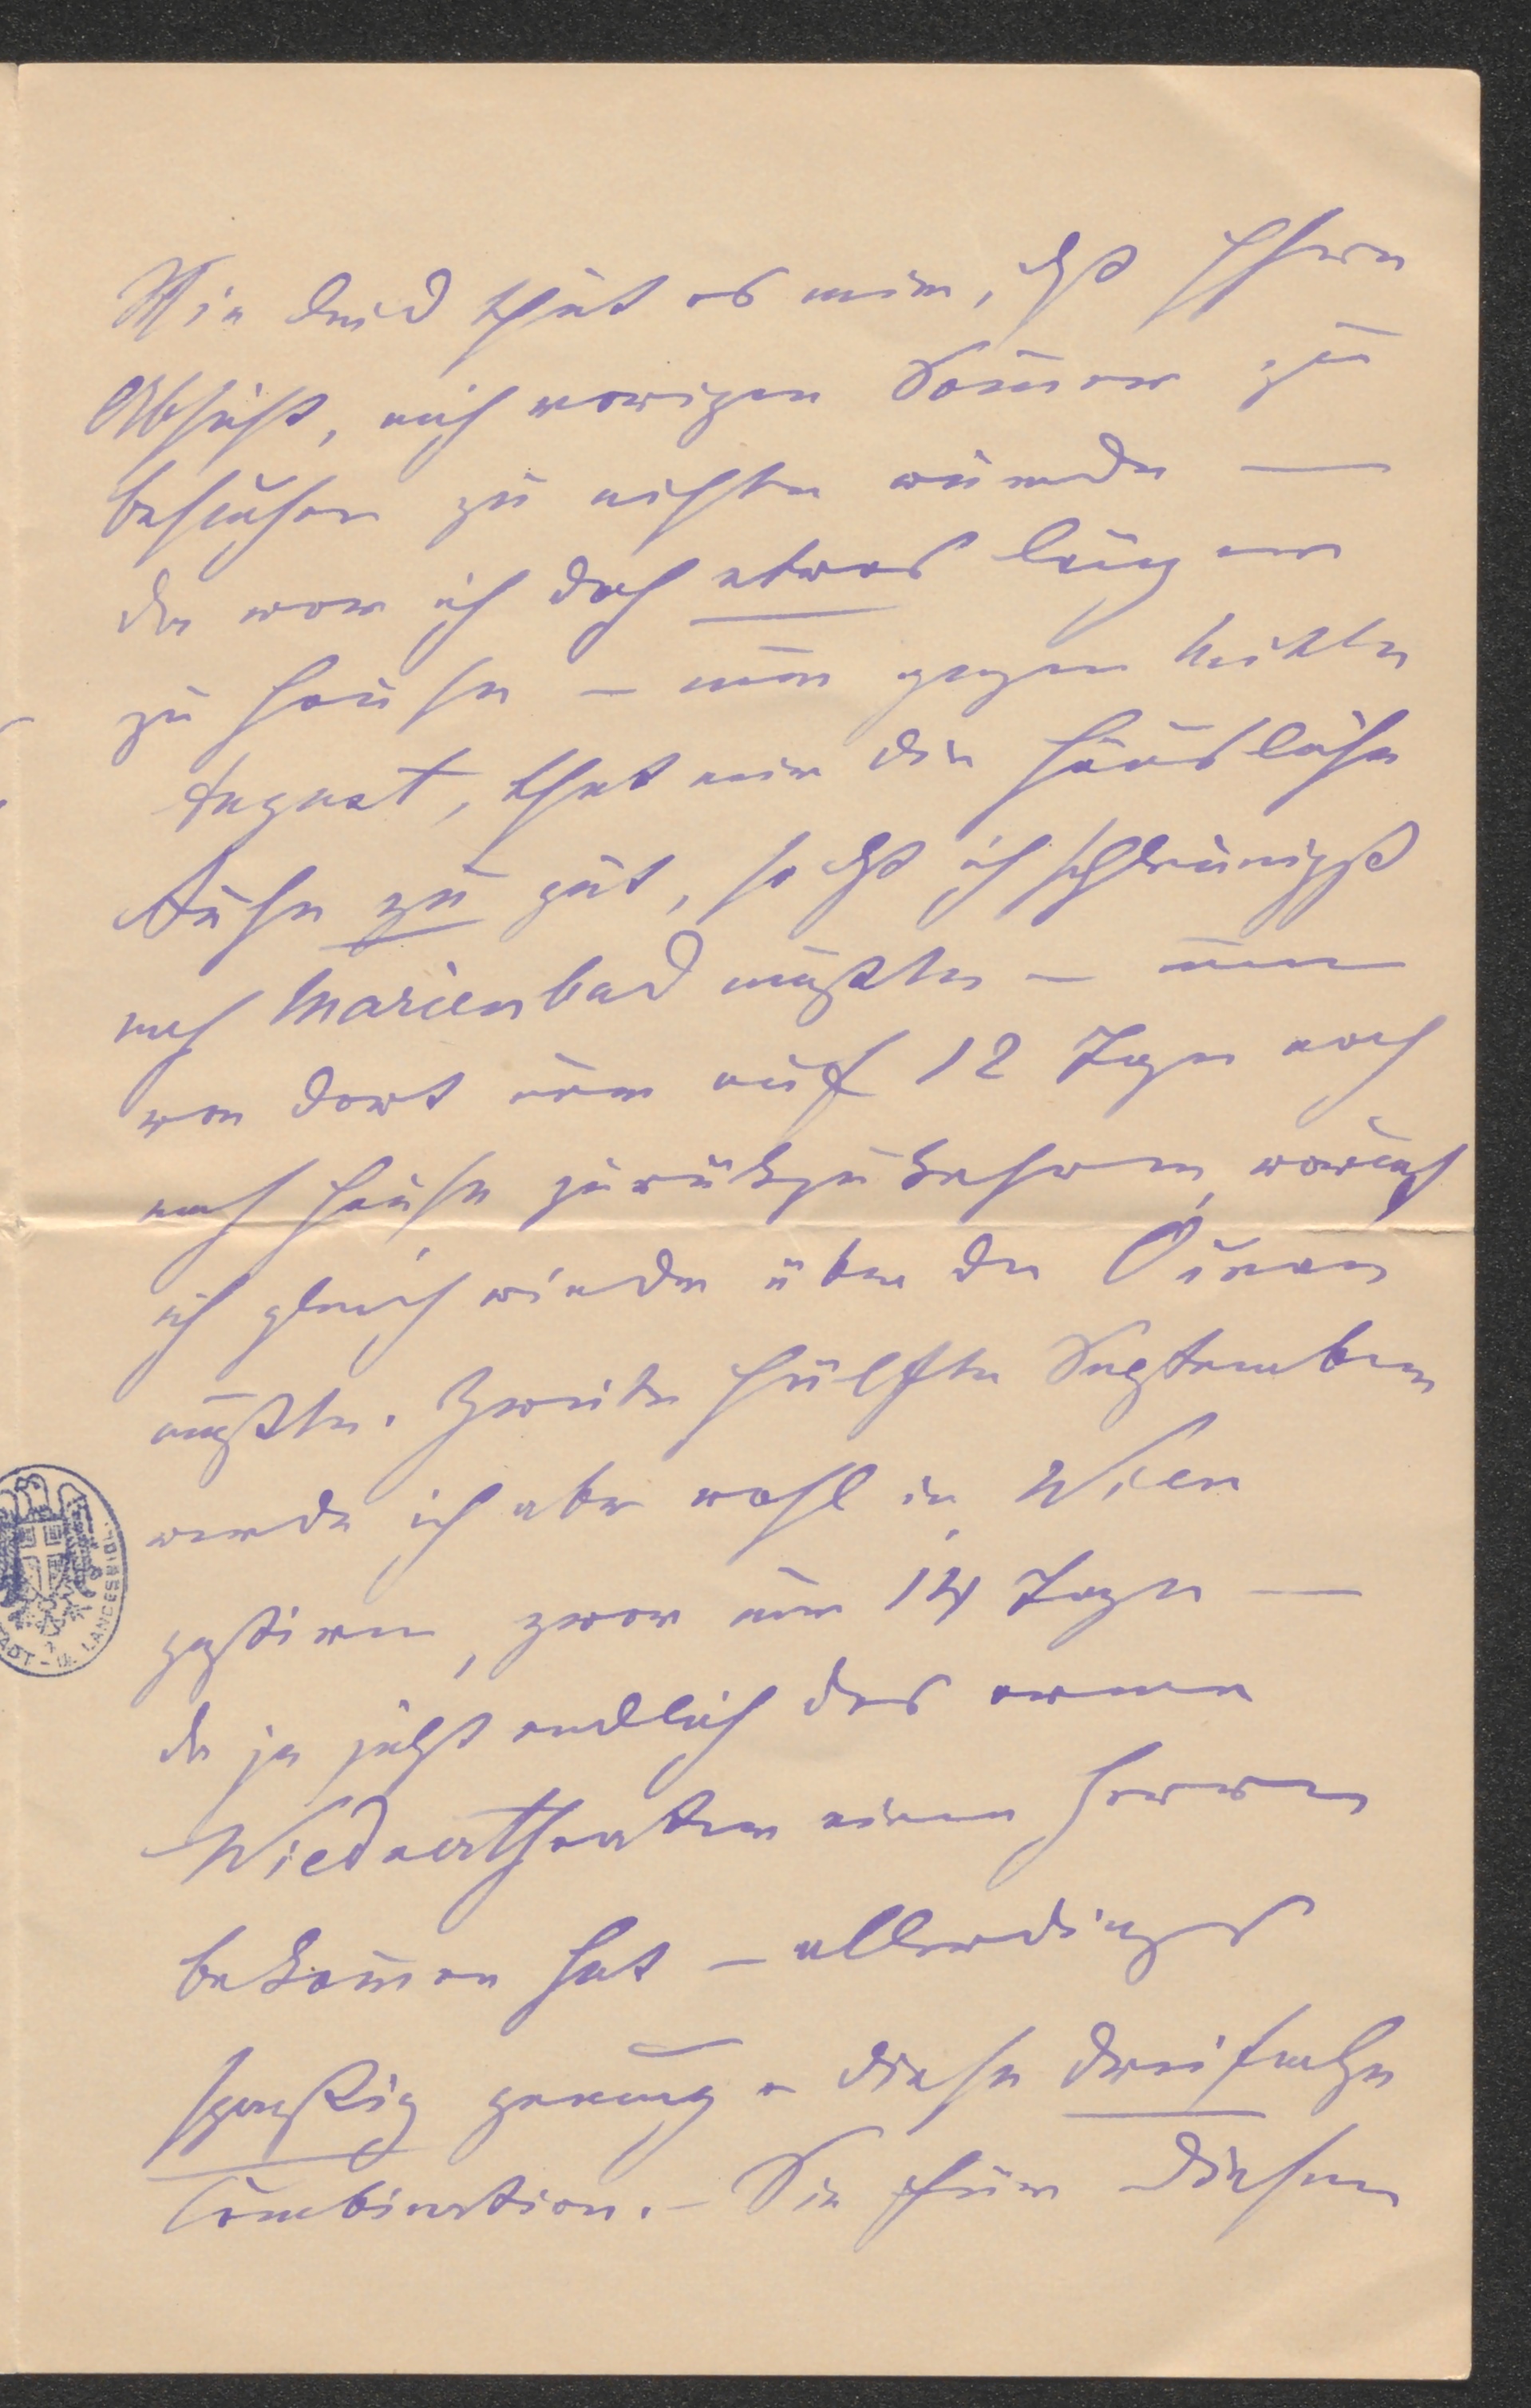 Wie leid thut es mir, daß Ihre
Absicht, mich vorigen Som̄er zu
besuchen zu nichte wurde —
da war ich doch etwas länger
zu Hause — nun gegen Mitte
August, that mir die häusliche
Ruhe zu gut, so daß ich schleunigst
nach Marienbad mußte — um
von dort nur auf 12 Tage noch
nach Hause zurückzukehren, worauf
ich gleich wieder über den Ocean
mußte. Zweite Hälfte September
werde ich aber wohl in Wien
gastiren, zwar nur 14 Tage —
da ja jetzt endlich das arme
Wiednertheater einen Herren
bekom̄en hat — allerdings
spaßig genug – diese dreifache
Combination. – Sie für diesen
ADT - u. LANDESBIBL